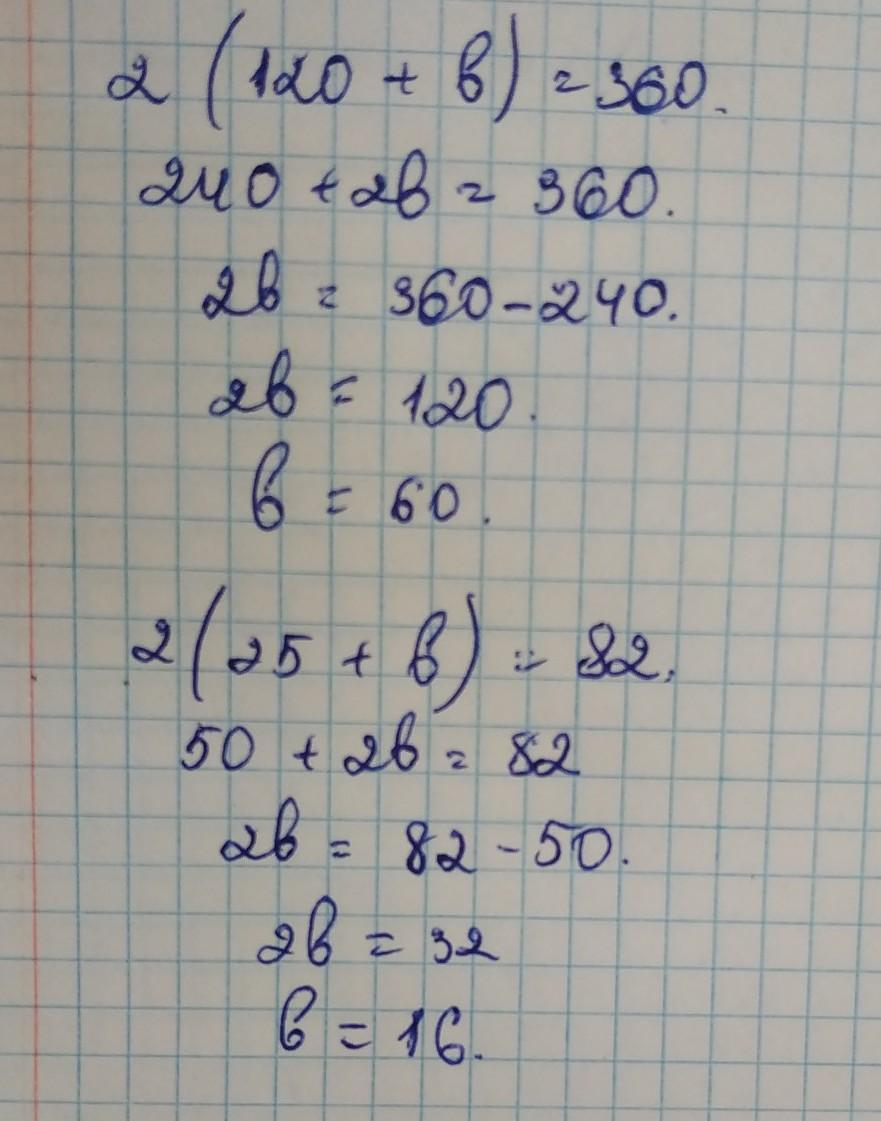 2 (120 + в) = 360.
240 + 2в = 360.
2в = 360 - 240.
2в = 120.
в = 60.
2(25 + в) = 82.
50 + 2в = 82
2в = 82 - 50.
2в = 32
в = 16.